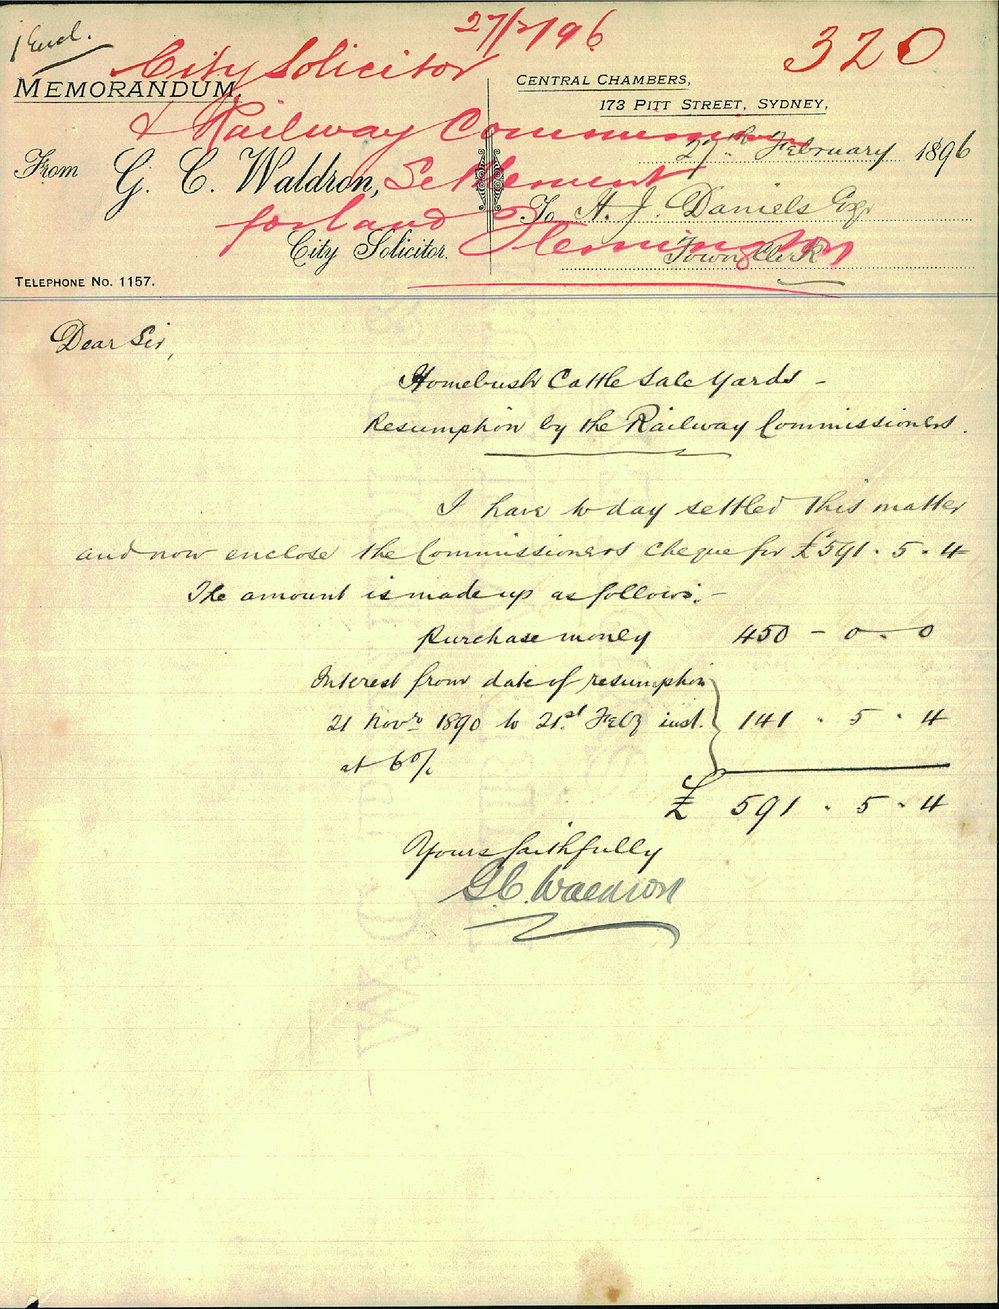 1 Encl.
27/2/96
320
City Solicitor
& Railway Commission
Settlement
for land
Flemington
MEMORANDUM.
CENTRAL CHAMBERS,
173 PITT STREET, SYDNEY,
27th February 1896
From G. C. Waldron,
City Solicitor.
To A. J. Daniels Esqr
Town Clerk
TELEPHONE No. 1157.
Dear Sir,
Homebush Cattle Sale Yards -
Resumption by the Railway Commissioners.
I have to day settled this matter
and now enclose the Commissioners cheque for £591. 5. 4
The amount is made up as follows:-
Purchase money 450 - 0. 0
Interest from date of resumption
21 Novr 1890 to 21st Feby inst. 141. 5. 4
at 6%
£ 591. 5. 4
Yours faithfully
G.C. Waldron